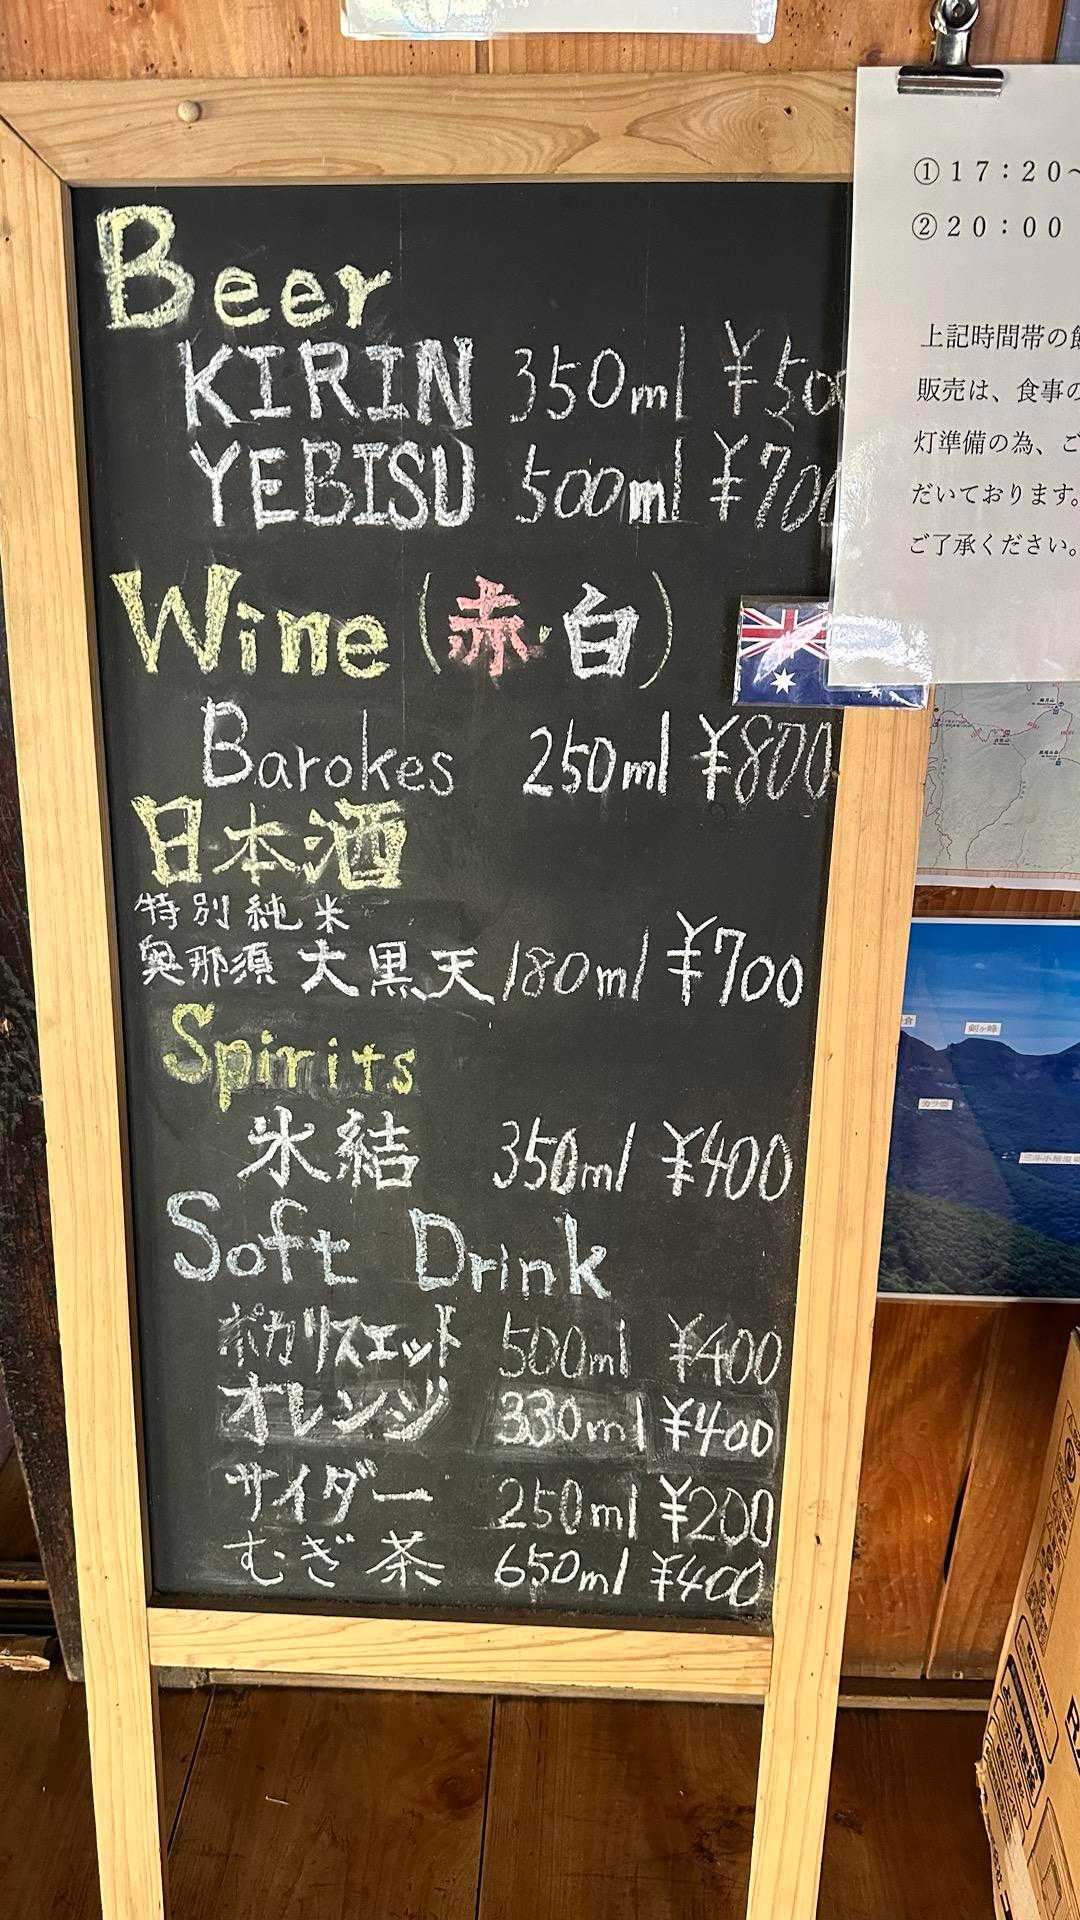 Beer
KIRIN 350ml ¥500
YEBISU 500ml ¥700
Wine (赤・白)
Barokes 250ml ¥800
日本酒
特別純米
奥那須 大黒天 180ml ¥700
Spirits
氷結 350ml ¥400
Soft Drink
ポカリスエット 500ml ¥400
オレンジ 330ml ¥400
サイダー 250ml ¥200
むぎ茶 650ml ¥400
①17:20~
②20:00
上記時間帯の
販売は、食事の
灯準備の為、ご
だいております。
ご了承ください。
剣ヶ峰